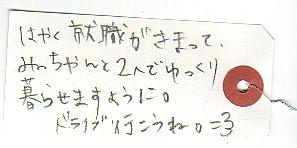 はやく就職がきまって、
みっちゃんと2人でゆっくり
暮らせますように。
ドライブ行こうね。=3